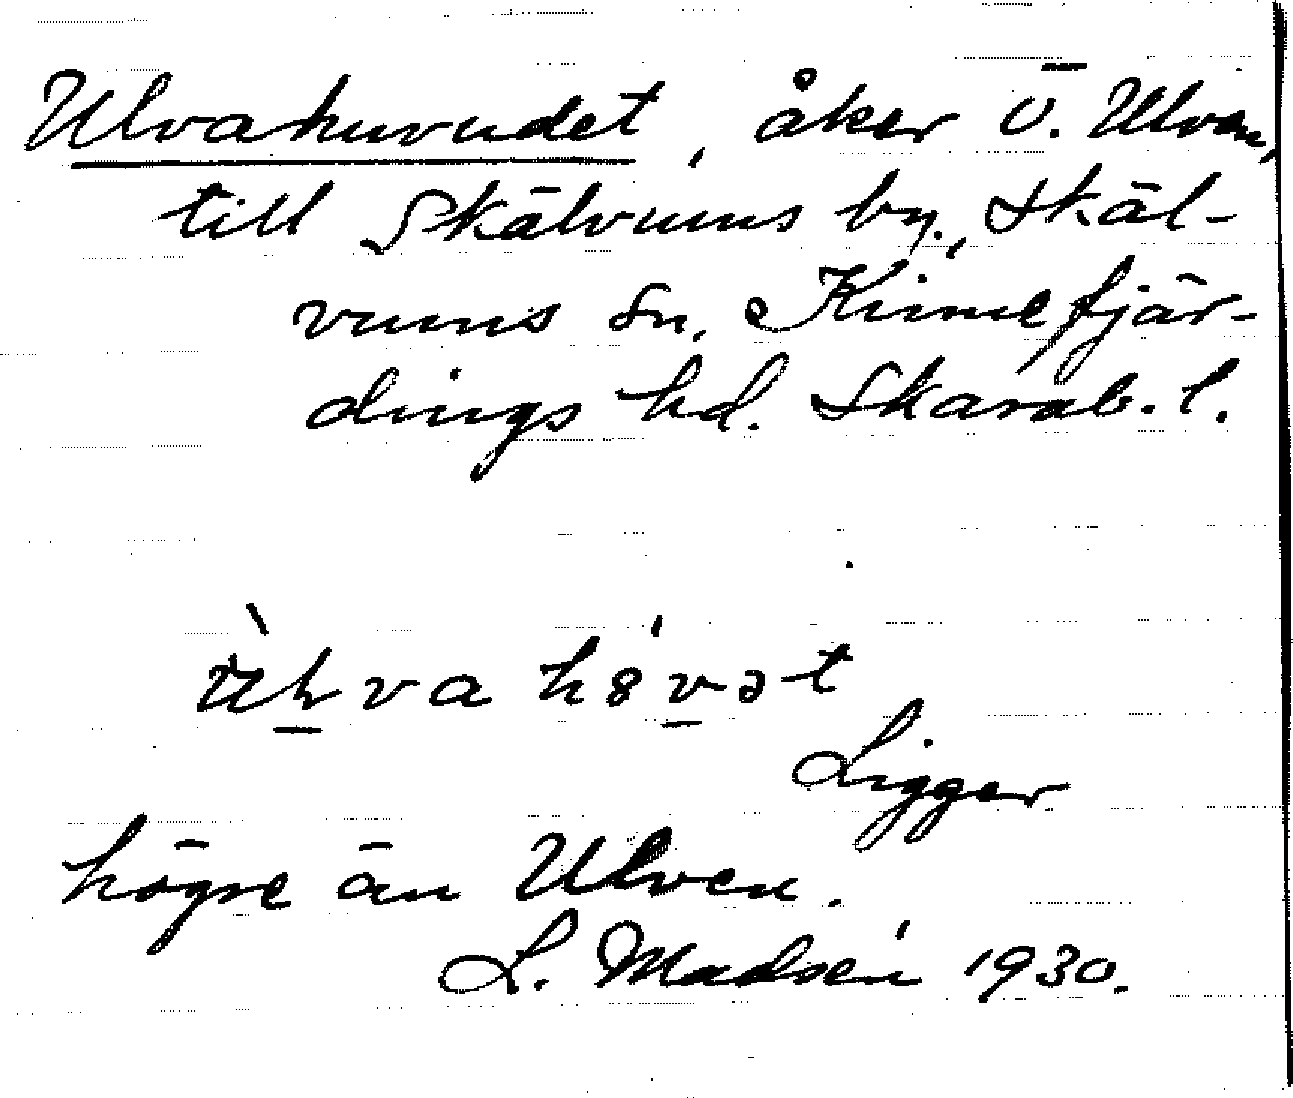 Ulvahuvudet, åker Ö. Ulven,
till Skälvums by, Skäl-
vums sn, Kinnefjär-
dings hd. Skarab. l.
ùlva hȣ́vət
Ligger
högre än Ulven.
L. Madsén 1930.